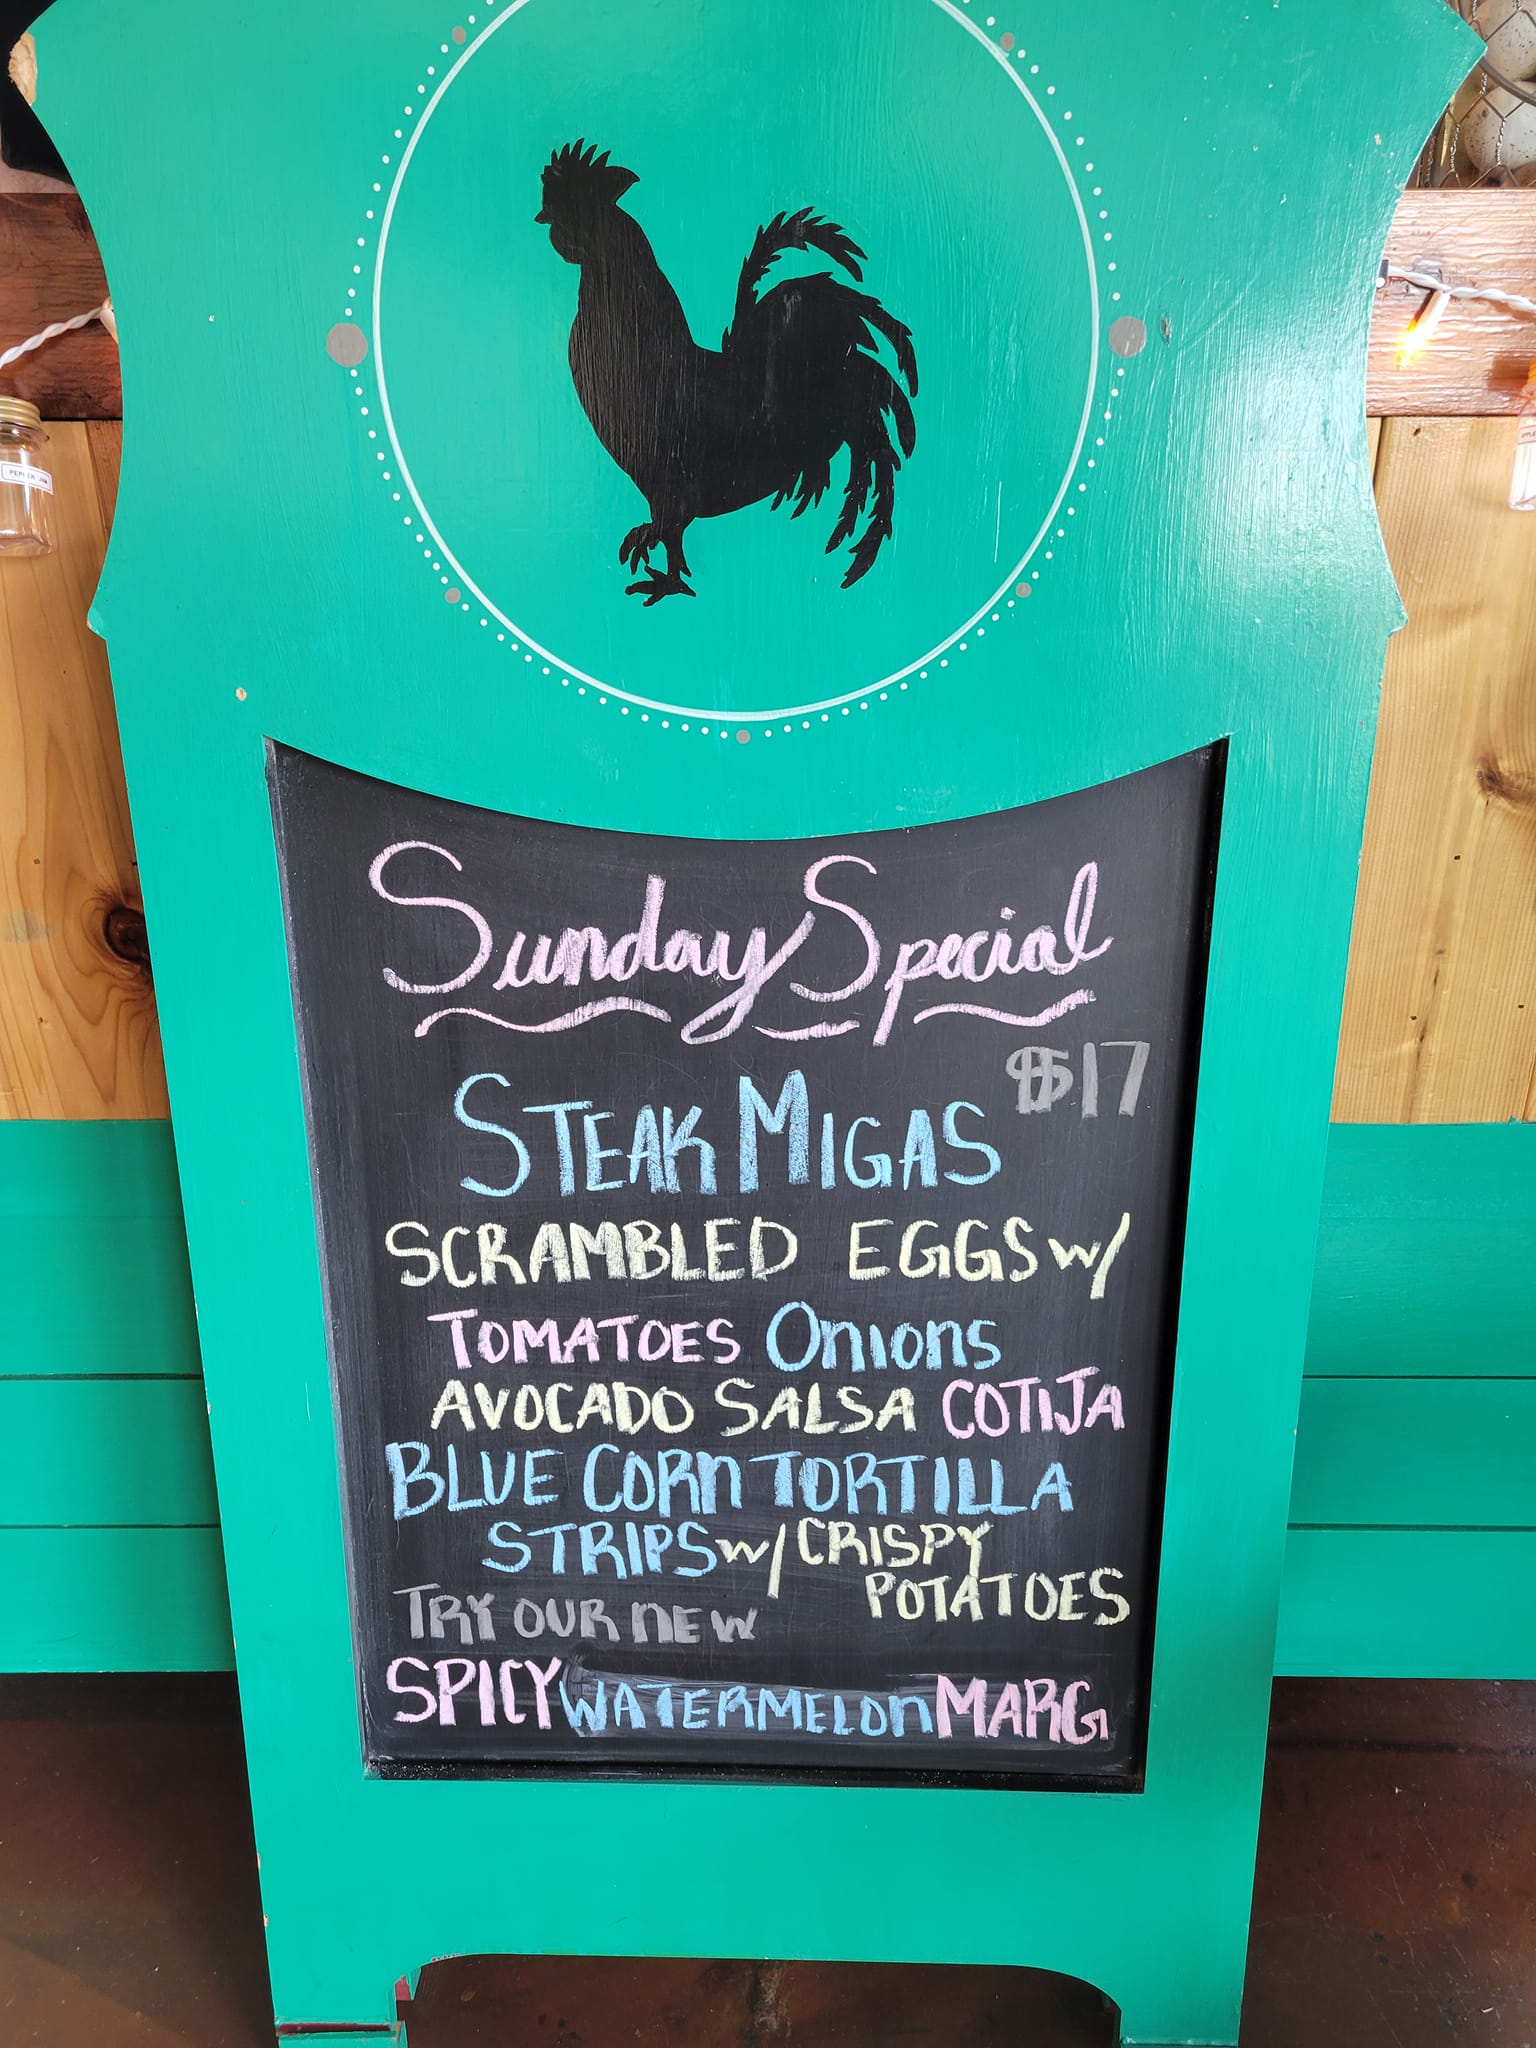 Sunday Special
$17
STEAK MIGAS
SCRAMBLED EGGS w/
TOMATOES Onions
AVOCADO SALSA COTIJA
BLUE CORn TORTILLA
STRIPS w/ CRISPY
POTATOES
TRY OUR nEW
SPICY WATERMELOn MARG
PEPPER JAM
APPLE